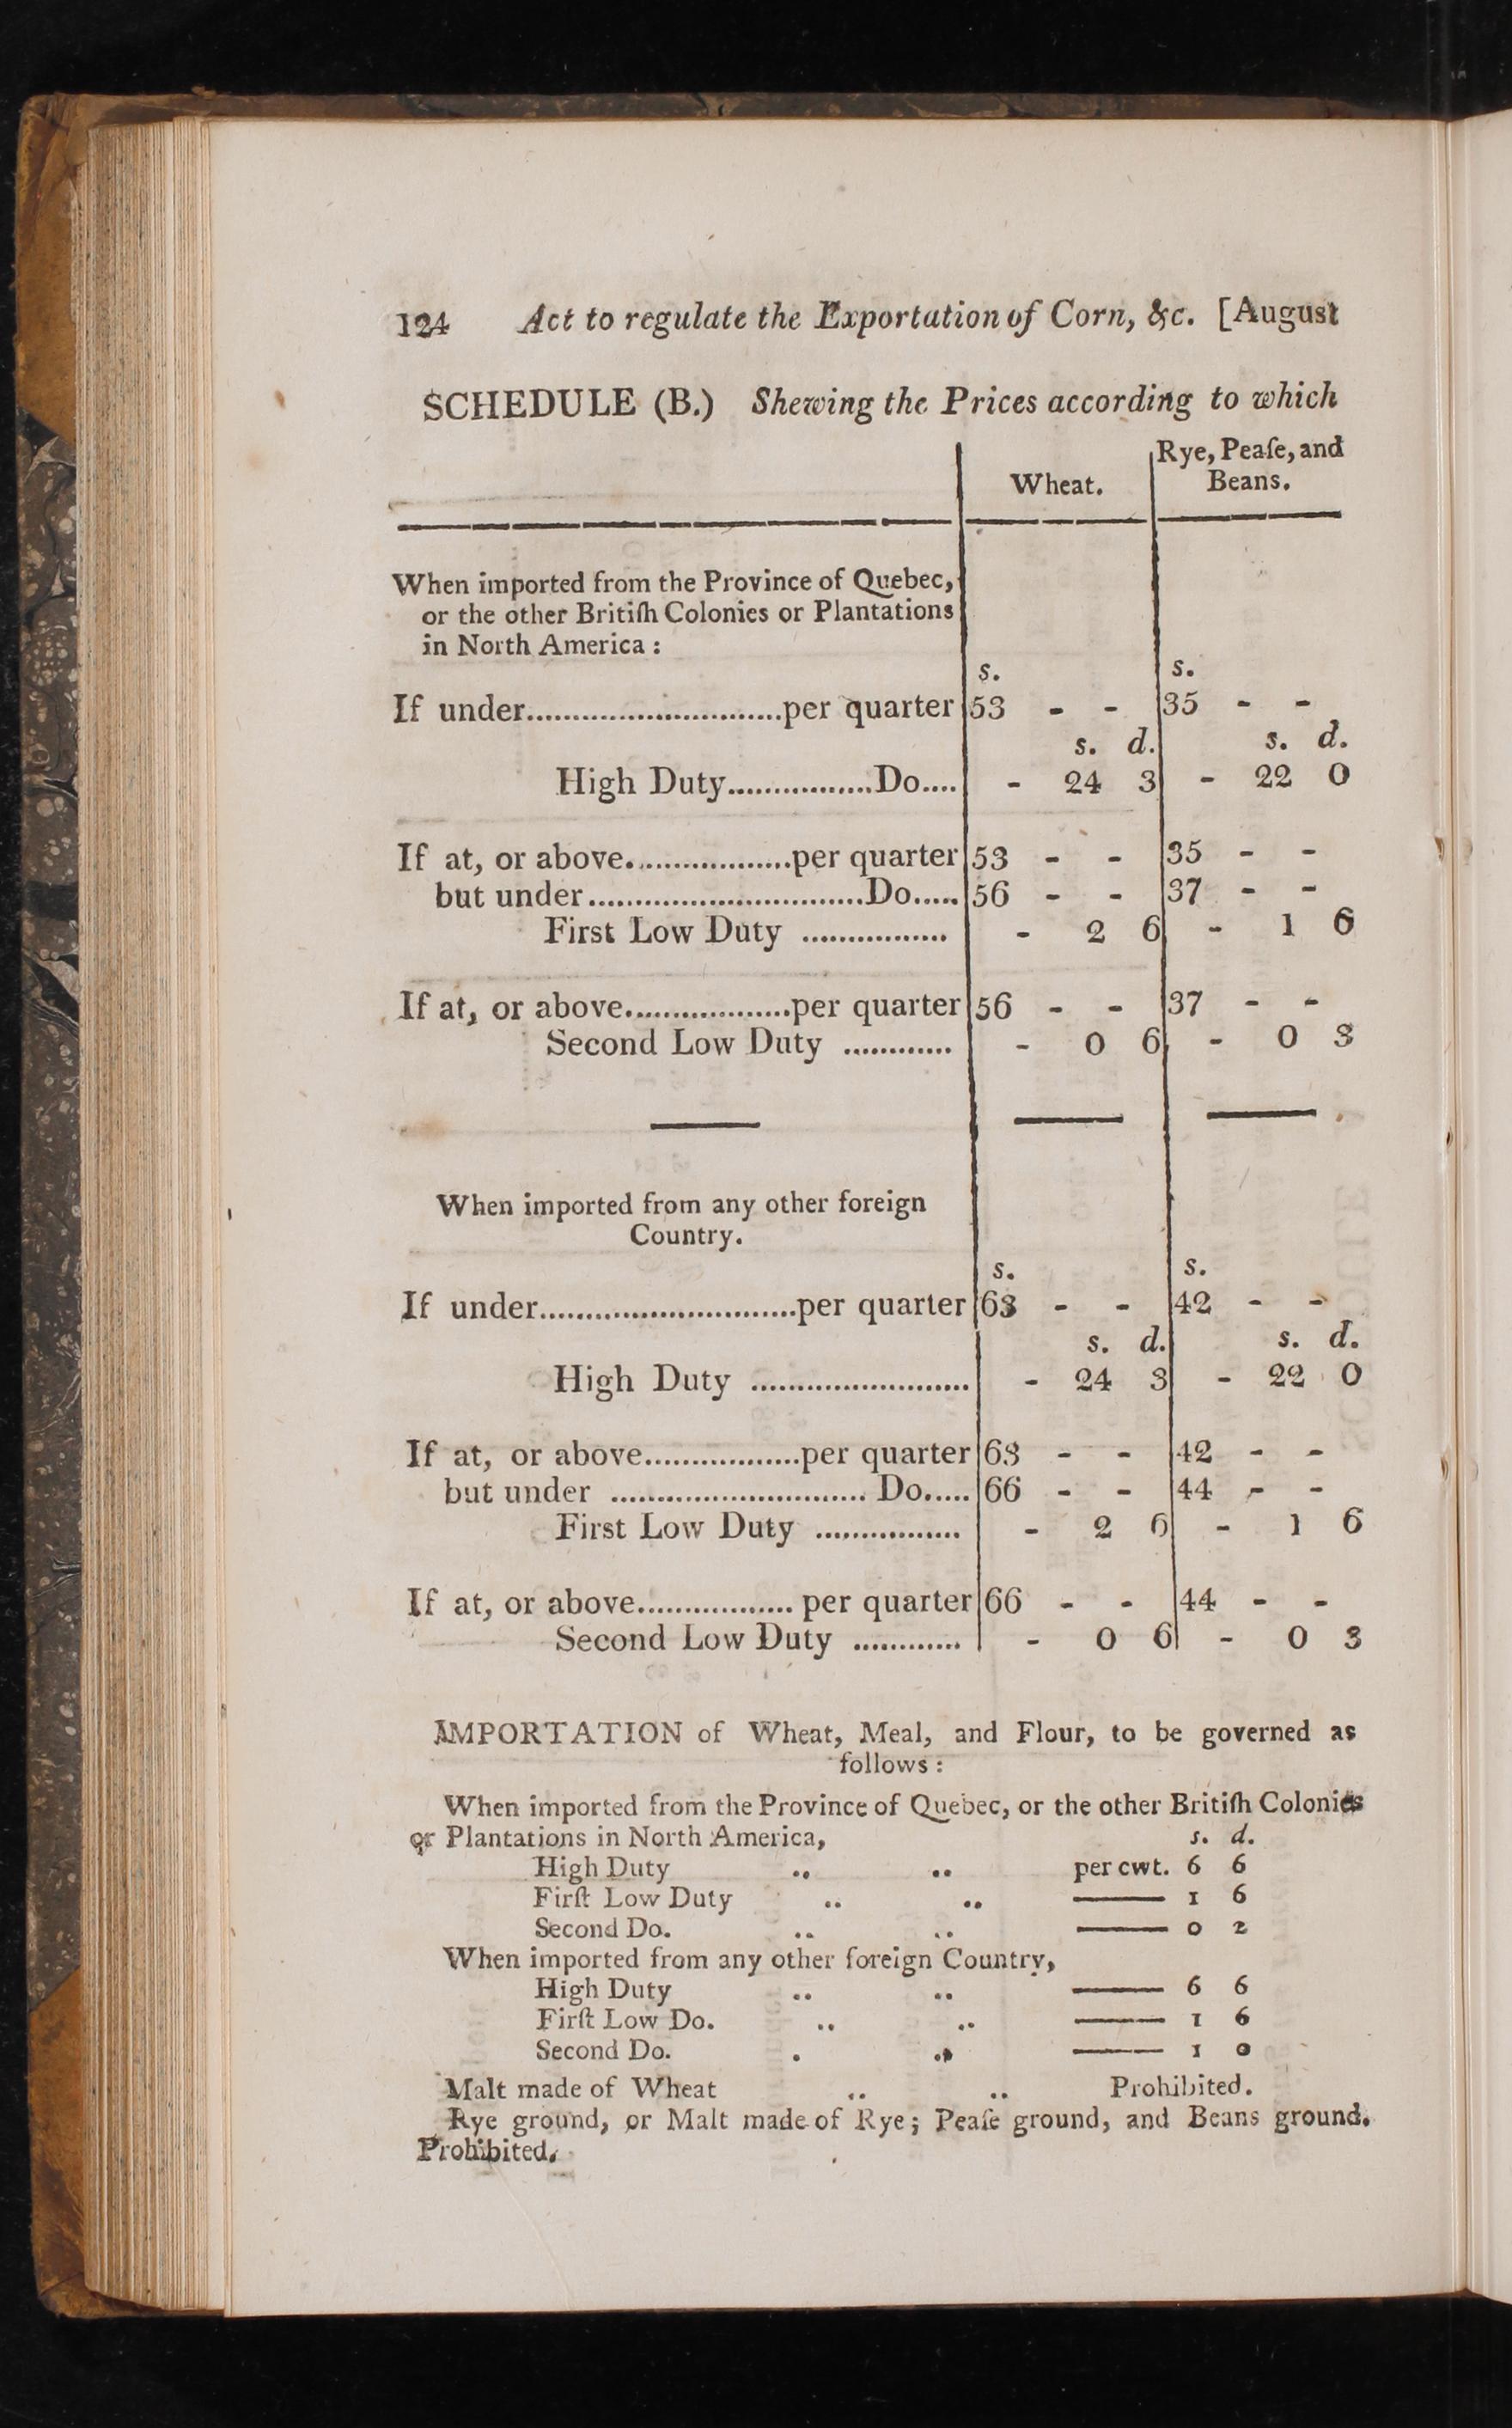 124 Act to regulate the Exportation of Corn, &c. [August
SCHEDULE (B.) Shewing the Prices according to which
Rye, Peaſe, and
Wheat. Beans.
When imported from the Province of Quebec,
or the other Britiſh Colonies or Plantations
in North America :
s. s.
If under............................per quarter 53 - - 35 - -
s. d. s. d.
High Duty................Do.... - 24 3 - 22 0
If at, or above..................per quarter 53 - - 35 - -
but under..............................Do..... 56 - - 37 - -
First Low Duty ................ - 2 6 - 1 6
If at, or above..................per quarter 56 - - 37 - -
Second Low Duty ............ - 0 6 - 0 3
When imported from any other foreign
Country.
s. s.
If under............................per quarter 63 - - 42 - -
s. d. s. d.
High Duty ........................ - 24 3 - 22 0
If at, or above.................per quarter 63 - - 42 - -
but under ............................ Do..... 66 - - 44 - -
First Low Duty ................ - 2 6 - 1 6
If at, or above................. per quarter 66 - - 44 - -
Second Low Duty ............ - 0 6 - 0 3
IMPORTATION of Wheat, Meal, and Flour, to be governed as
follows :
When imported from the Province of Quebec, or the other Britiſh Colonies
or Plantations in North America, s. d.
High Duty .. .. per cwt. 6 6
Firſt Low Duty .. .. —— 1 6
Second Do. .. .. —— 0 2
When imported from any other foreign Country,
High Duty .. .. —— 6 6
Firſt Low Do. .. .. —— 1 6
Second Do. . .. —— 1 0
Malt made of Wheat .. .. Prohibited.
Rye ground, or Malt made of Rye; Peaſe ground, and Beans ground.
Prohibited.